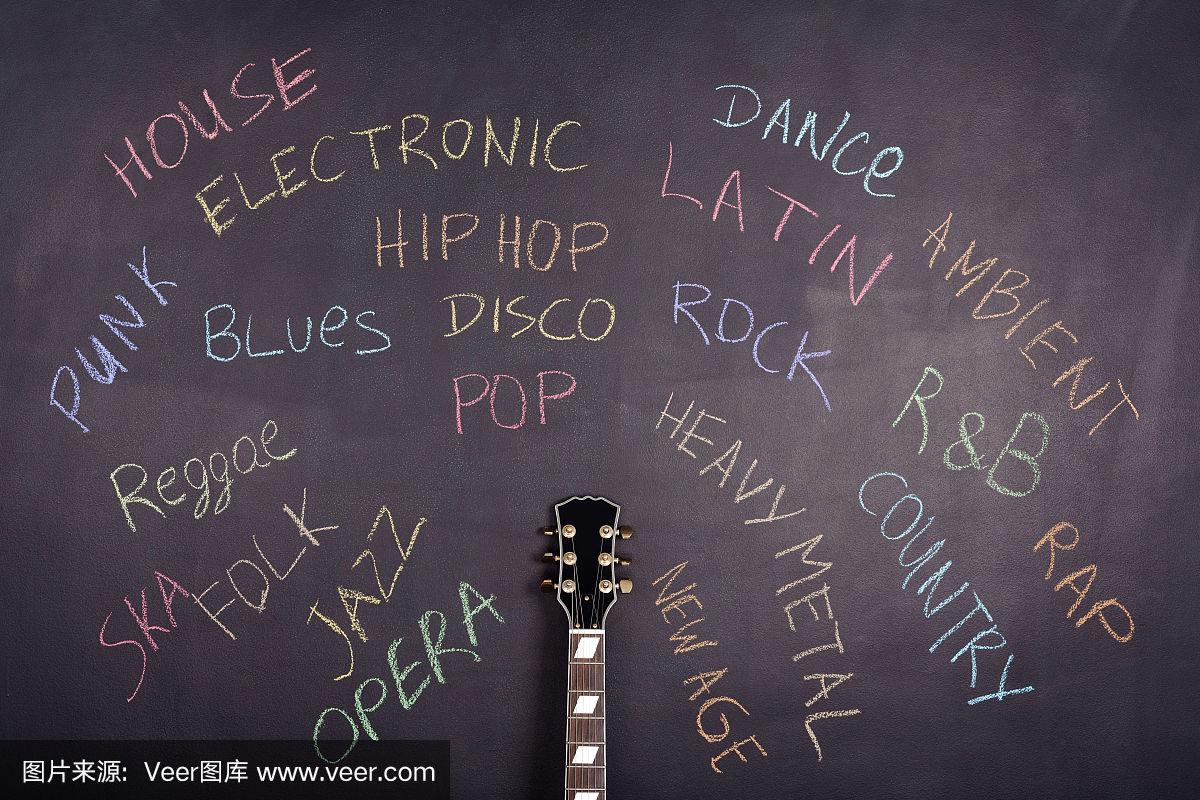 HOUSE
ELECTRONIC
DANCe
LATIN
HIP HOP
AMBIENT
PUNK
BLues
DISCO
ROCK
POP
R&B
HEAVY METAL
Reggae
COUNTRY
FOLK
JAZZ
RAP
SKA
OPERA
NEW AGE
图片来源: Veer图库 www.veer.com